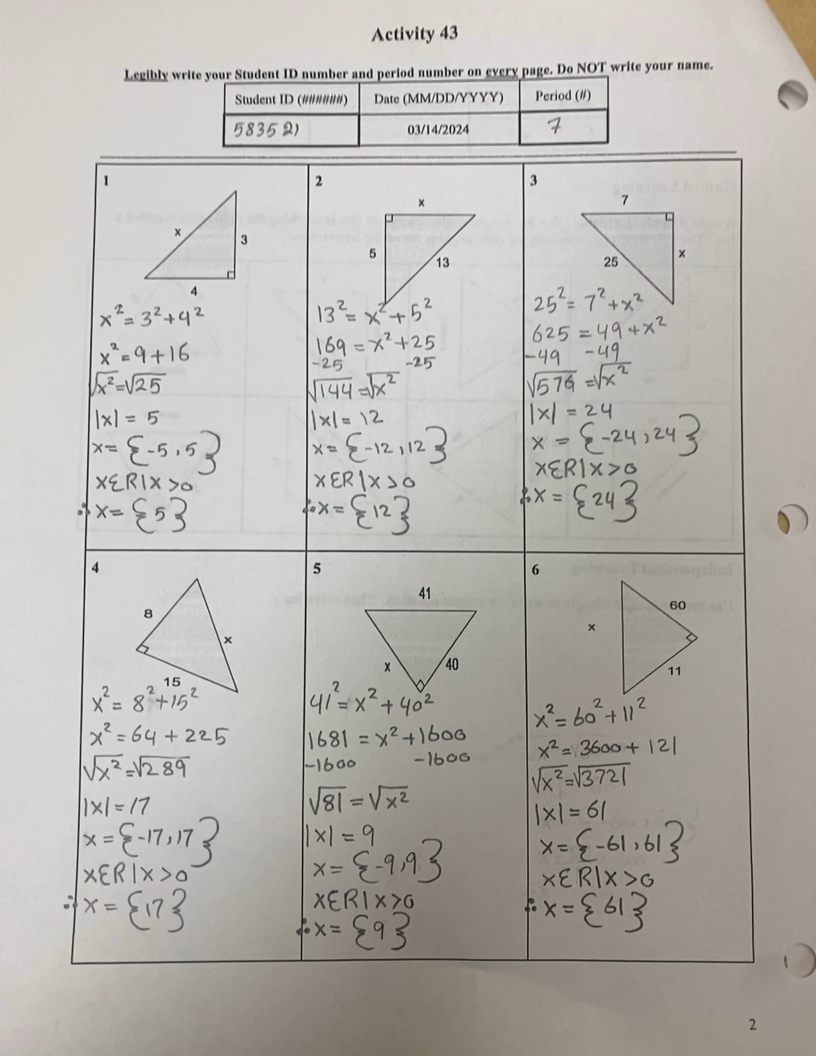 Activity 43
Legibly write your Student ID number and period number on every page. Do NOT write your name.
Student ID (######) Date (MM/DD/YYYY) Period (#)
583521 03/14/2024 7
1
x
3
4
x²=3²+4²
x²=9+16
√x²=√25
|x|=5
x={-5,5}
xƐR|x>0
∴x={5}
2
x
5
13
13²=x²+5²
169=x²+25
-25 -25
√144=√x²
|x|=12
x={-12,12}
xƐR|x>0
∴x={12}
3
7
25
x
25²=7²+x²
625=49+x²
-49 -49
√576=√x²
|x|=24
x={-24,24}
xƐR|x>0
∴x={24}
4
8
x
15
x²=8²+15²
x²=64+225
√x²=√289
|x|=17
x={-17,17}
xƐR|x>0
∴x={17}
5
41
x
40
41²=x²+40²
1681=x²+1600
-1600 -1600
√81=√x²
|x|=9
x={-9,9}
xƐR|x>0
∴x={9}
6
60
x
11
x²=60²+11²
x²=3600+121
√x²=√3721
|x|=61
x={-61,61}
xƐR|x>0
∴x={61}
2